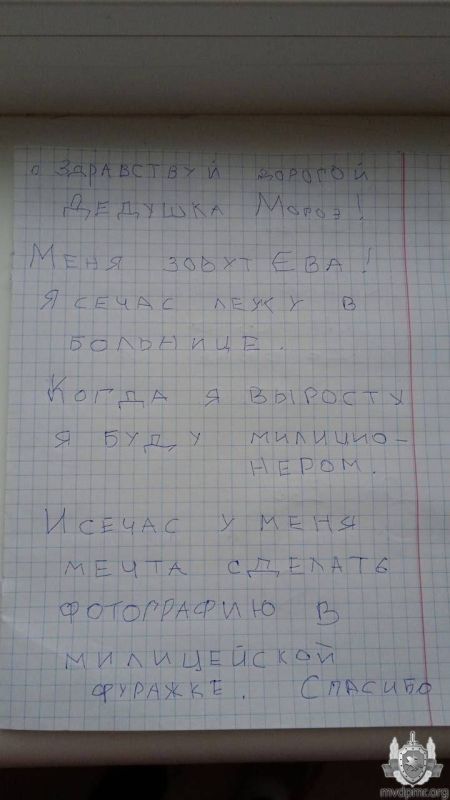 Здравствуй дорогой
Дедушка Мороз!
Меня зовут Ева!
Я сечас лежу в
больнице.
Когда я выросту
я буду милицио-
нером.
И сечас у меня
мечта сделать
фотографию в
милицейской
фуражке. Спасибо
mvdpmr.org